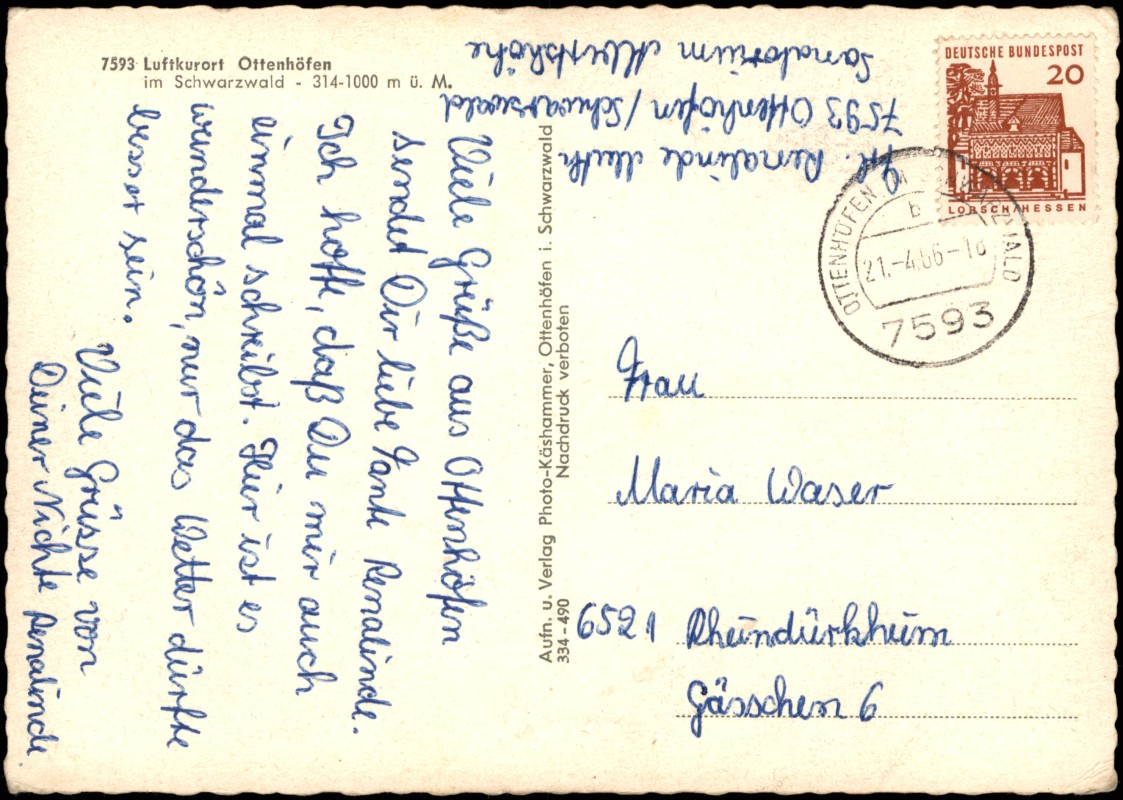 7593 Luftkurort Ottenhöfen
im Schwarzwald - 314-1000 m ü. M.
Viele Grüße aus Ottenhöfen
sendet Dir liebe Tante Renalinde.
Ich hoffe, daß Du mir auch
einmal schreibst. Hier ist es
wunderschön, nur das Wetter dürfte
besser sein.
Viele Grüsse von
Deiner Nichte Renalinde
Aufn. u. Verlag Photo-Käshammer, Ottenhöfen i. Schwarzwald
334-490 Nachdruck verboten
Renalinde
7593 Ottenhöfen/Schwarzwald
Sanatorium Albertshöhe
DEUTSCHE BUNDESPOST
20
LORSCH/HESSEN
OTTENHÖFEN IM SCHWARZWALD
b
21.-4.66-18
7593
Frau
Maria Waser
6521 Rheindürkheim
Gässchen 6